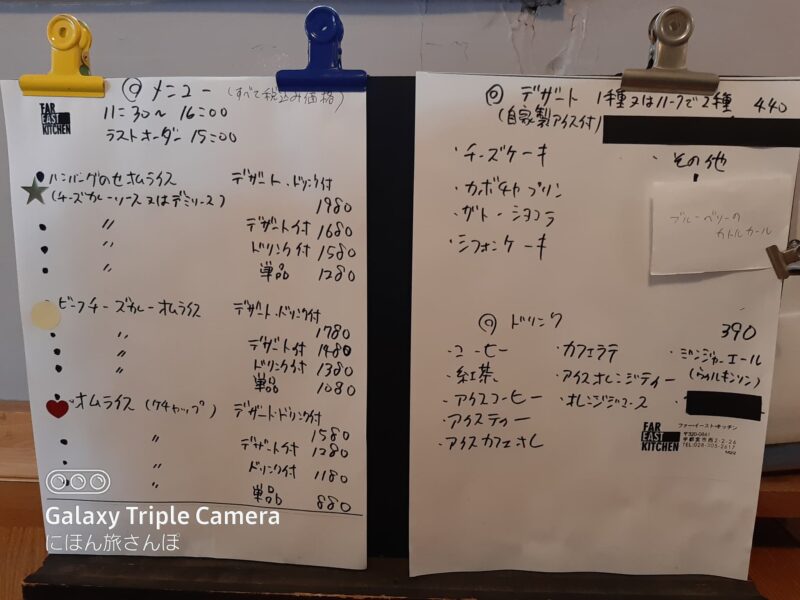 FAR EAST KITCHEN
◎ メニュー (すべて税込み価格)
11:30〜16:00
ラストオーダー 15:00
・ハンバーグのせオムライス デザート・ドリンク付
(チーズカレーソース又はデミソース) 1980
・ 〃 デザート付 1680
・ 〃 ドリンク付 1580
・ 〃 単品 1280
ビーフチーズカレーオムライス デザート・ドリンク付
1780
・ 〃 デザート付 1480
・ 〃 ドリンク付 1380
・ 〃 単品 1080
・オムライス (ケチャップ) デザート・ドリンク付
1580
・ 〃 デザート付 1280
・ 〃 ドリンク付 1180
・ 〃 単品 880
Galaxy Triple Camera
にほん旅さんぽ
◎ デザート 1種又はハーフで2種 440
(自家製アイス付)
・チーズケーキ ・その他
・カボチャプリン
・ガトーショコラ
・シフォンケーキ
ブルーベリーの
カトルカール
◎ ドリンク 390
・コーヒー ・カフェラテ ・ジンジャーエール
・紅茶 ・アイスオレンジティー (ウィルキンソン)
・アイスコーヒー ・オレンジジュース
・アイスティー
・アイスカフェオレ
FAR EAST KITCHEN
ファー・イースト・キッチン
〒320-0841
宇都宮市西2-2-26